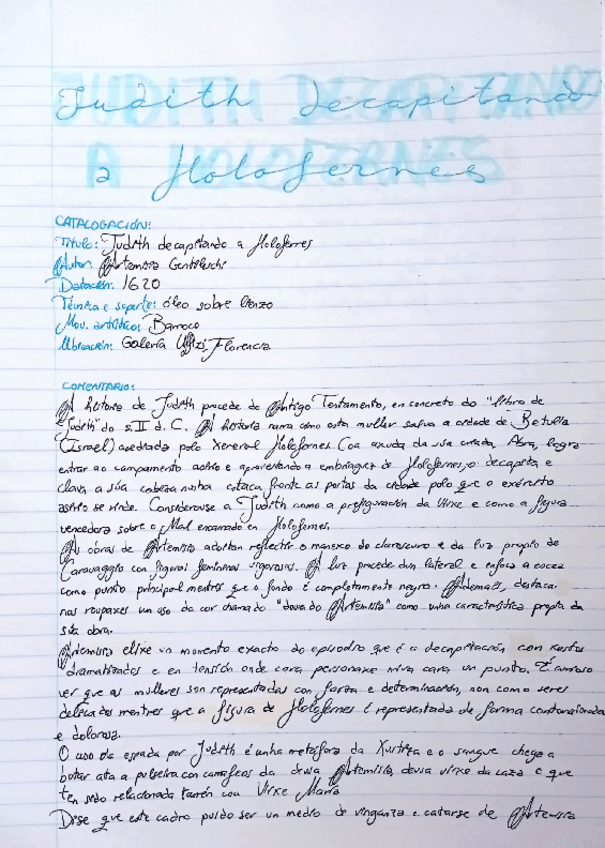 Judith Decapitando
a Holofernes
CATALOGACIÓN:
Título: Judith decapitando a Holofernes
Autor: Artemisia Gentileschi
Datación: 1620
Técnica e soporte: óleo sobre lienzo
Mov. artístico: Barroco
Ubicación: Galería Uffizi, Florencia
COMENTARIO:
A historia de Judith procede do Antigo Testamento, en concreto do "libro de
Judith" do s.II d.C. A historia narra como esta muller salva a cidade de Betulia
(Israel) asediada polo Xeneral Holofernes. Coa axuda da súa criada, Abra, logra
entrar ao campamento asirio e aproveitando a embriaguez de Holofernes, o decapita e
clava a súa cabeza nunha estaca fronte as portas da cidade polo que o exército
asirio se rinde. Considerouse a Judith como a prefiguración da Virxe e como a figura
vencedora sobre o Mal encarnado en Holofernes.
As obras de Artemisia adoitan reflectir o manexo do claroscuro e da luz propio de
Caravaggio con figuras femininas vigorosas. A luz procede dun lateral e enfoca a escea
como punto principal mentres que o fondo é completamente negro. Ademais, destaca
nas roupaxes un uso da cor chamado "dourado Artemisia" como unha característica propia da
súa obra.
Artemisia elixe un momento exacto do episodio que é a decapitación con xestos
dramatizados e en tensión onde cara personaxe mira cara un punto. É curioso
ver que as mulleres son representadas con forza e determinación, non como seres
delicados mentres que a figura de Holofernes é representada de forma contorsionada
e dolorosa.
O uso da espada por Judith é unha metáfora da Xustiza e o sangue chega a
botar ata a pulseira con camafeos da deusa Artemisia, deusa virxe da caza e que
ten sido relacionada tamén coa Virxe María
Dise que este cadro puido ser un medio de vinganza e catarse de Artemisia